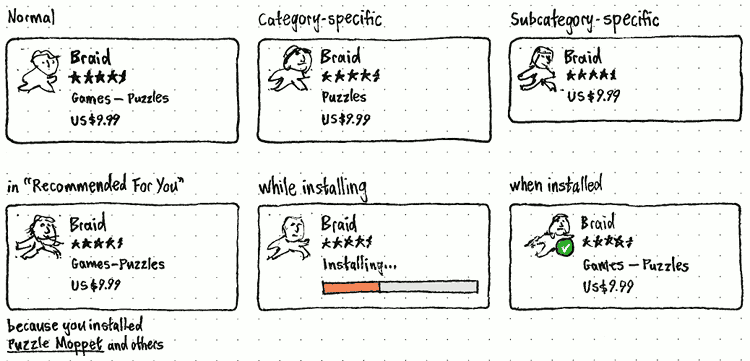 Normal
Braid
Games – Puzzles
US$9.99
Category-specific
Braid
Puzzles
US$9.99
Subcategory-specific
Braid
US$9.99
in "Recommended For You"
Braid
Games-Puzzles
US$9.99
because you installed
Puzzle Moppet and others
while installing
Braid
Installing...
when installed
Braid
Games – Puzzles
US$9.99